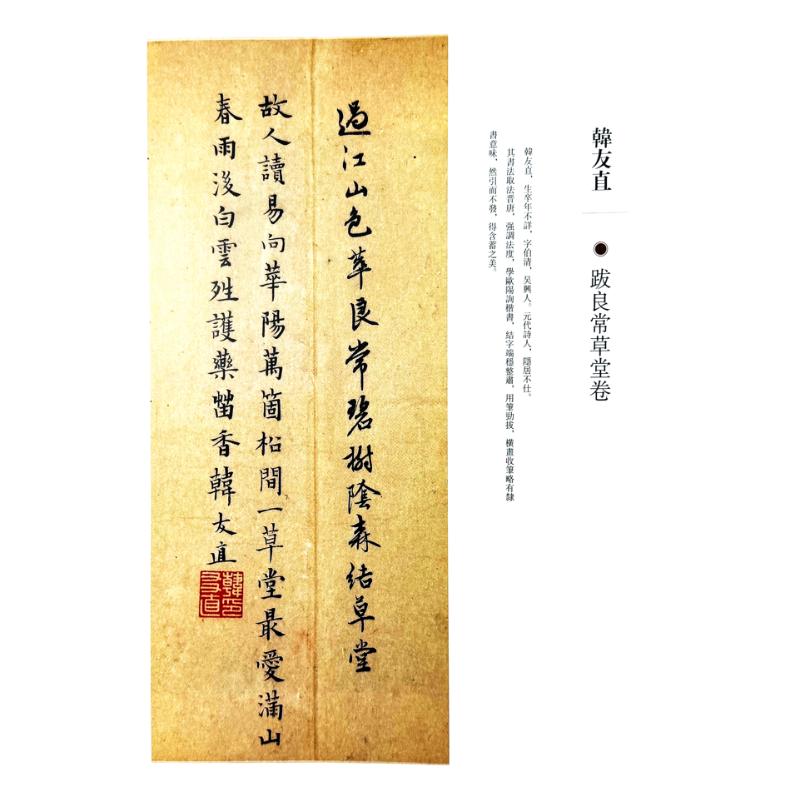 韓友直
跋良常草堂卷
韓友直，生卒年不詳，字伯清，吴興人。元代詩人，隱居不仕。
其書法取法晋唐，强調法度，學歐陽詢楷書，結字端穩整肅，用筆勁拔，橫畫收筆略有隸
書意味，然引而不發，得含蓄之美。
過江山色萃良常碧樹陰森結草堂
故人讀易向華陽萬箇松間一草堂最愛滿山
春雨後白雲護藥苗香韓友直
韓友直印